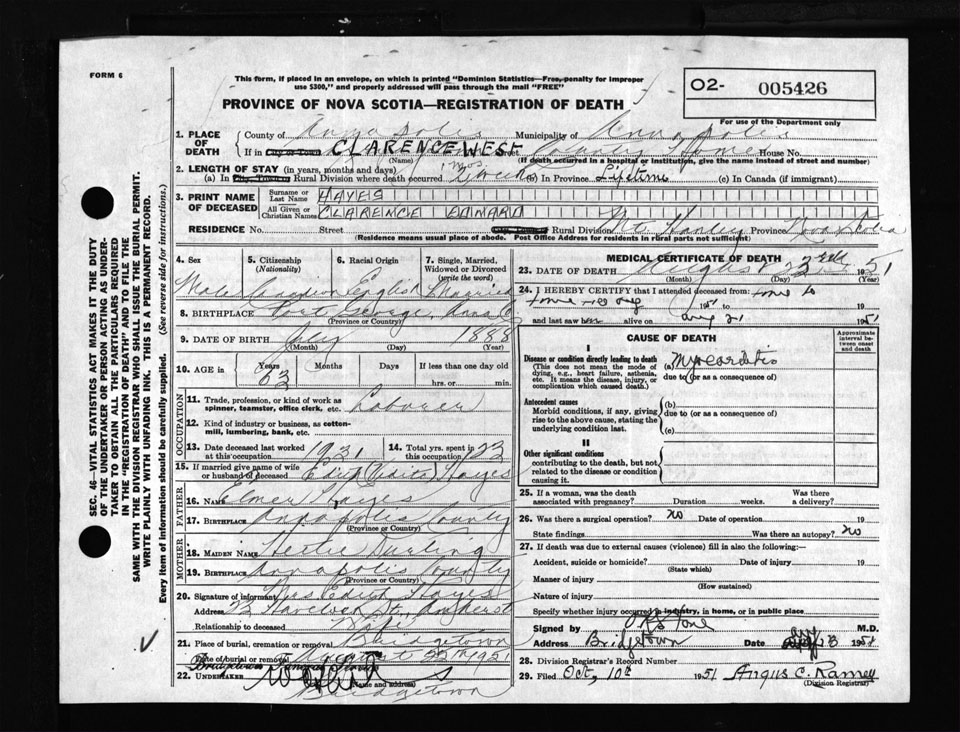 FORM 6
This form, if placed in an envelope, on which is printed "Dominion Statistics—Free, penalty for improper
use $300," and properly addressed will pass through the mail "FREE"
O2- 005426
For use of the Department only
PROVINCE OF NOVA SCOTIA—REGISTRATION OF DEATH
1. PLACE OF DEATH
County of Annapolis Municipality of Annapolis
If in City or Town CLARENCE WEST Street County Home House No.
(Name) (If death occurred in a hospital or institution, give the name instead of street and number)
2. LENGTH OF STAY (in years, months and days)
(a) In City, Town or Rural Division where death occurred (b) In Province Lifetime (c) In Canada (if immigrant)
3. PRINT NAME OF DECEASED
Surname or Last Name HAYES
All Given or Christian Names CLARENCE EDWARD
RESIDENCE No. Street Rural Division Mt. Hanley Province Nova Scotia
(Residence means usual place of abode. Post Office Address for residents in rural parts not sufficient)
4. Sex
5. Citizenship (Nationality)
6. Racial Origin
7. Single, Married, Widowed or Divorced (write the word)
Male Canadian English Married
8. BIRTHPLACE Port George, Anna Co
(Province or Country)
9. DATE OF BIRTH July 1888
(Month) (Day) (Year)
10. AGE in Years Months Days If less than one day
63 hrs. or min.
OCCUPATION
11. Trade, profession, or kind of work as spinner, teamster, office clerk, etc. Laborer
12. Kind of industry or business, as cotton-mill, lumbering, bank, etc.
13. Date deceased last worked at this occupation 1931
14. Total yrs. spent in this occupation 23
15. If married give name of wife or husband of deceased Edith Hayes
FATHER
16. NAME Elmer Hayes
17. BIRTHPLACE Annapolis County
(Province or Country)
MOTHER
18. MAIDEN NAME Durling
19. BIRTHPLACE Annapolis County
(Province or Country)
20. Signature of informant Mrs Edith Hayes
Address 22 Havelock St, Amherst
Relationship to deceased Wife
21. Place of burial, cremation or removal Bridgetown
Date of burial or removal August 25th 1951
22. UNDERTAKER
(Name and address)
Bridgetown
MEDICAL CERTIFICATE OF DEATH
23. DATE OF DEATH August 23rd 1951
(Month) (Day) (Year)
24. I HEREBY CERTIFY that I attended deceased from: time to
time 1951 19
and last saw him alive on Aug 21 1951
CAUSE OF DEATH
Approximate interval between onset and death
I
Disease or condition directly leading to death
(This does not mean the mode of dying, e.g., heart failure, asthenia, etc. It means the disease, injury, or complication which caused death.)
(a) Myocarditis
due to (or as a consequence of)
Antecedent causes
Morbid conditions, if any, giving rise to the above cause, stating the underlying condition last.
(b)
due to (or as a consequence of)
(c)
II
Other significant conditions
contributing to the death, but not related to the disease or condition causing it.
25. If a woman, was the death associated with pregnancy? Duration weeks. Was there a delivery?
26. Was there a surgical operation? No Date of operation 19
State findings Was there an autopsy? No
27. If death was due to external causes (violence) fill in also the following:—
Accident, suicide or homicide? Date of injury 19
(State which)
Manner of injury
(How sustained)
Nature of injury
Specify whether injury occurred in industry, in home, or in public place
Signed by M.D.
Address Bridgetown 1951
28. Division Registrar's Record Number
29. Filed Oct, 10th 1951 Angus C. Ramey
(Division Registrar)
SEC. 46—VITAL STATISTICS ACT MAKES IT THE DUTY
OF THE UNDERTAKER OR PERSON ACTING AS UNDER-
TAKER TO OBTAIN ALL THE PARTICULARS REQUIRED
IN THE "REGISTRATION OF DEATH" AND TO FILE THE
SAME WITH THE DIVISION REGISTRAR WHO SHALL ISSUE THE BURIAL PERMIT.
WRITE PLAINLY WITH UNFADING INK. THIS IS A PERMANENT RECORD.
Every item of information should be carefully supplied. (See reverse side for instructions.)